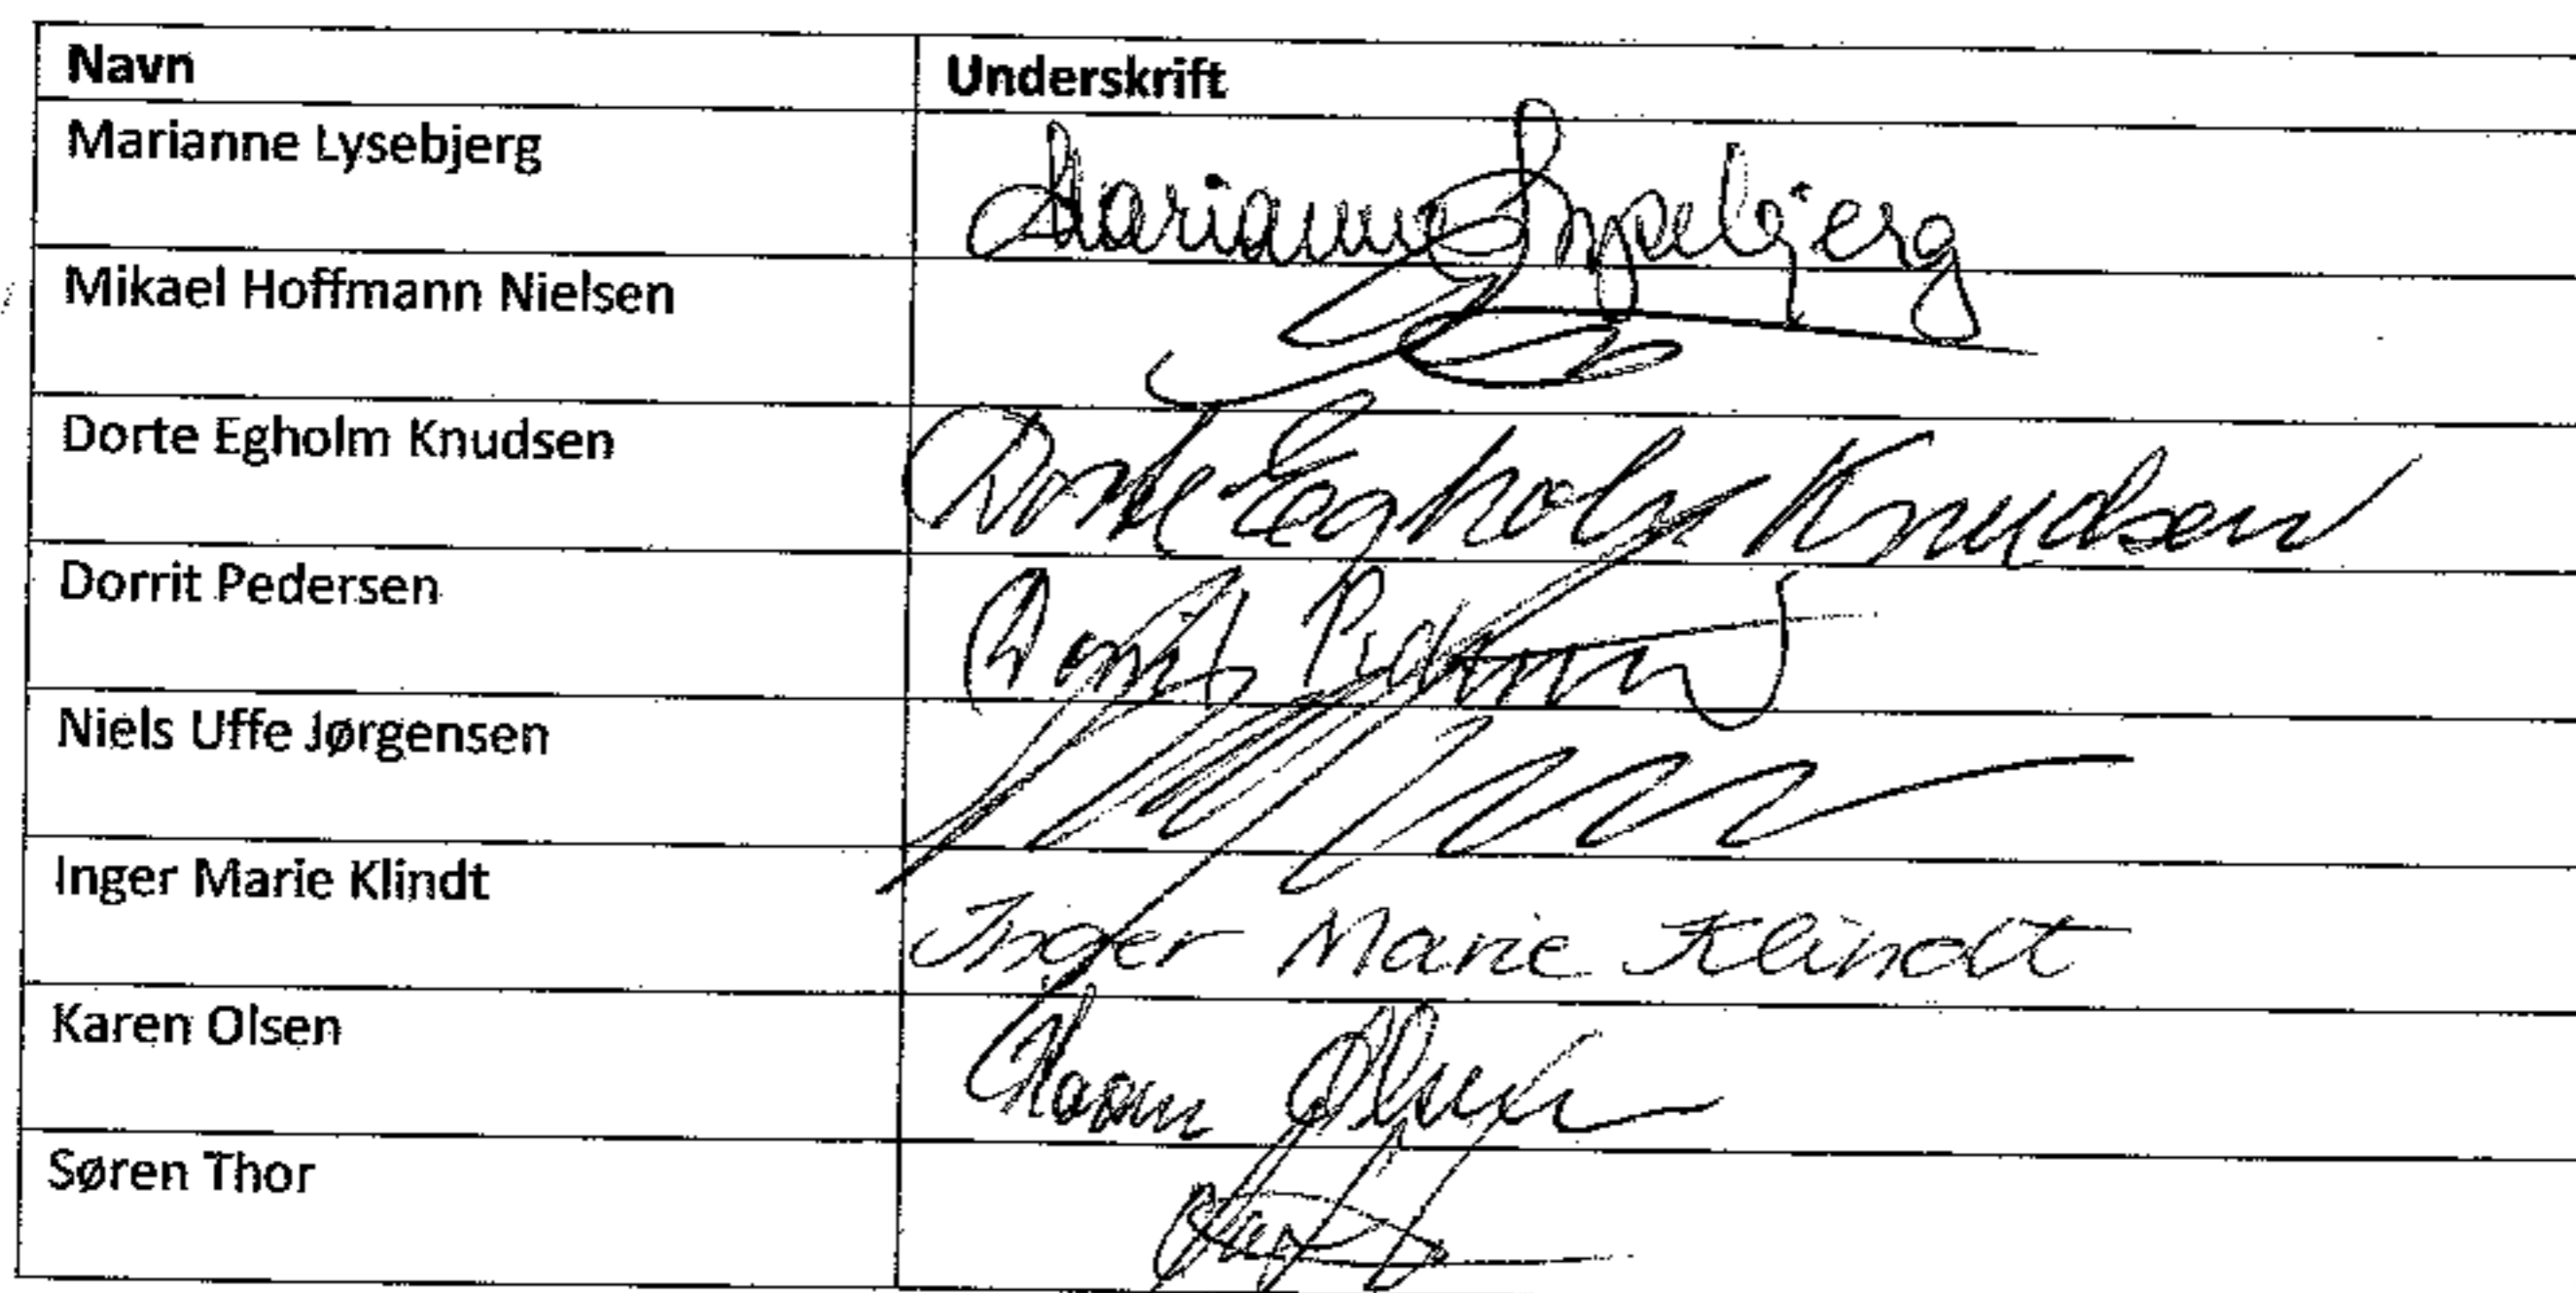 Navn Underskrift
Marianne Lysebjerg Marianne Lysebjerg
Mikael Hoffmann Nielsen
Dorte Egholm Knudsen Dorte Egholm Knudsen
Dorrit Pedersen Dorrit Pedersen
Niels Uffe Jørgensen
Inger Marie Klindt Inger Marie Klindt
Karen Olsen Karen Olsen
Søren Thor